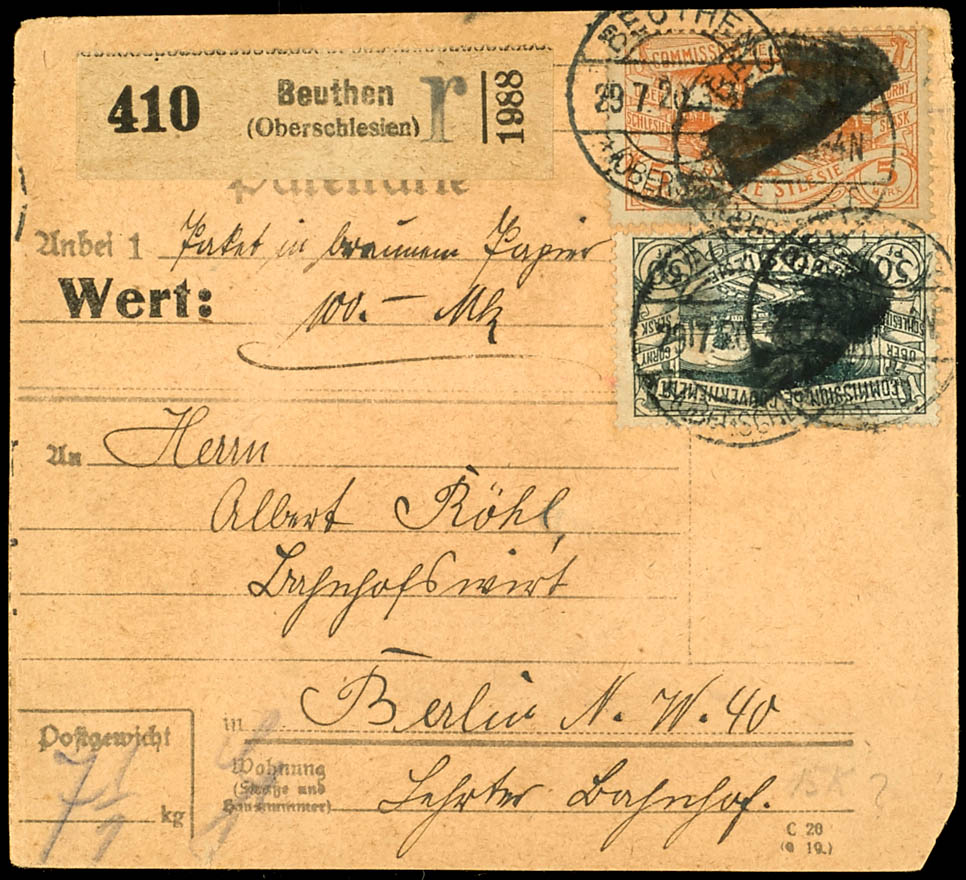 410 Beuthen r 1988
(Oberschlesien)
Paketkarte
Anbei 1 Paket in braunem Papier
Wert: 100.– Mk
An Herrn
Albert Röhl,
Bahnhofswirt
in Berlin N. W. 40
Wohnung
(Straße und
Hausnummer)
Lehrter Bahnhof.
Postgewicht
kg
15K ?
C 20
(9 19.)
BEUTHEN
29.7.20
COMMISSION DE
5
MARK
50
COMMISSION DE GOUVERNEMENT
OBER
SCHLESIEN
GORNY
ŚLĄSK
29.7.20